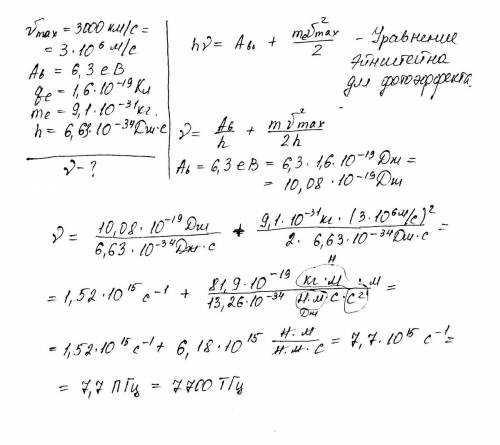 υmax = 3000 км/с =
= 3·10⁶ м/с
Aв = 6,3 еВ
qe = 1,6·10⁻¹⁹ Кл
me = 9,1·10⁻³¹ кг.
h = 6,63·10⁻³⁴ Дж·с
ν - ?
hν = Aв + meυ²max/2 - Уравнение
Эйнштейна
для фотоэффекта.
ν = Aв/h + mυ²max/2h
Aв = 6,3 еВ = 6,3·1,6·10⁻¹⁹ Дж =
= 10,08·10⁻¹⁹ Дж
ν = 10,08·10⁻¹⁹ Дж/6,63·10⁻³⁴ Дж·с + 9,1·10⁻³¹ кг·(3·10⁶ м/с)²/2·6,63·10⁻³⁴ Дж·с =
= 1,52·10¹⁵ с⁻¹ + 81,9·10⁻¹⁹ кг·м·м/13,26·10⁻³⁴ Н·м·с·с² =
Н
Дж
= 1,52·10¹⁵ с⁻¹ + 6,18·10¹⁵ Н·м/Н·м·с = 7,7·10¹⁵ с⁻¹ =
= 7,7 ПГц = 7700 ТГц